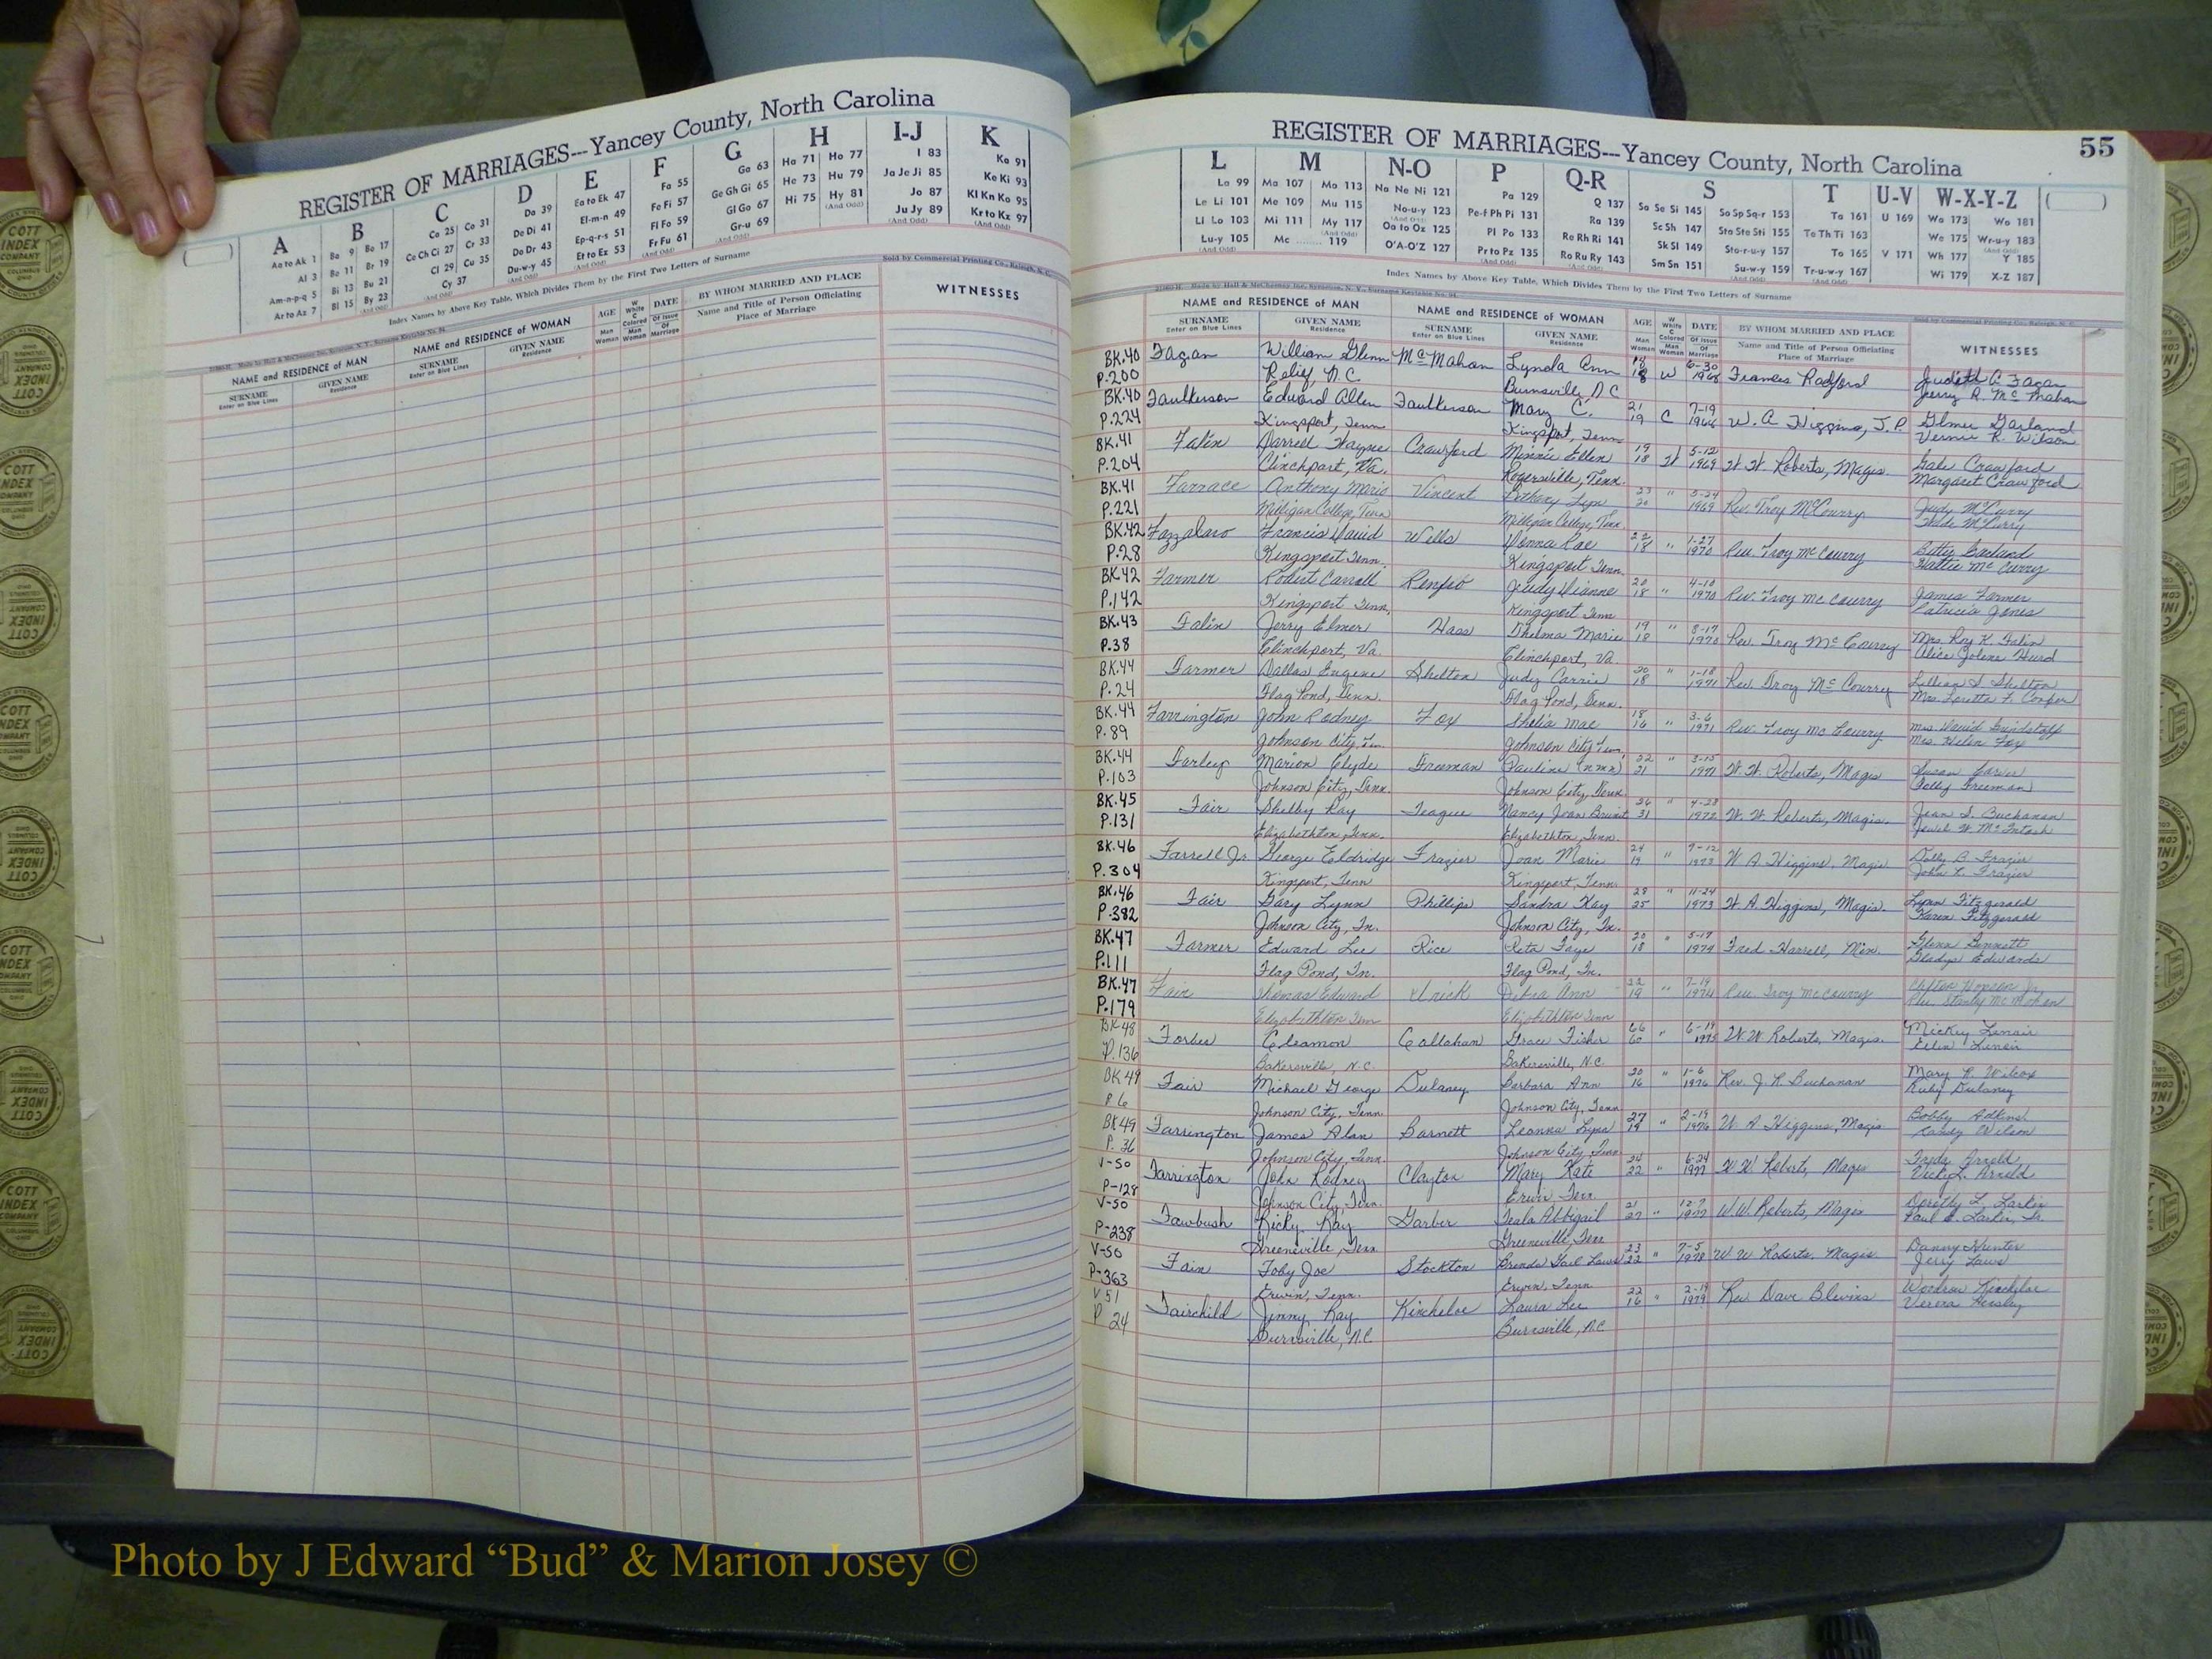 REGISTER OF MARRIAGES---Yancey County, North Carolina
A B C D E F G H I-J K
Aa to Ak 1 Ba 9 Bo 17 Ca 25 Co 31 Da 39 Ea to Ek 47 Fa 55 Ga 63 Ha 71 Ho 77 I 83 Ka 91
Al 3 Be 11 Br 19 Ce Ch Ci 27 Cr 33 De Di 41 El-m-n 49 Fe Fi 57 Ge Gh Gi 65 He 73 Hu 79 Ja Je Ji 85 Ke Ki 93
Am-n-p-q 5 Bi 13 Bu 21 Cl 29 Cu 35 Do Dr 43 Ep-q-r-s 51 Fl Fo 59 Gl Go 67 Hi 75 Hy 81 Jo 87 Kl Kn Ko 95
Ar to Az 7 Bl 15 By 23 Cy 37 Du-w-y 45 Et to Ez 53 Fr Fu 61 Gr-u 69 Ju Jy 89 Kr to Kz 97
Index Names by Above Key Table, Which Divides Them by the First Two Letters of Surname
Sold by Commercial Printing Co., Raleigh, N. C.
NAME and RESIDENCE of MAN NAME and RESIDENCE of WOMAN AGE DATE BY WHOM MARRIED AND PLACE WITNESSES
SURNAME Enter on Blue Lines GIVEN NAME Residence SURNAME Enter on Blue Lines GIVEN NAME Residence Man Woman W White C Colored Man Woman Of Issue Of Marriage Name and Title of Person Officiating Place of Marriage
REGISTER OF MARRIAGES---Yancey County, North Carolina 55
L M N-O P Q-R S T U-V W-X-Y-Z
La 99 Ma 107 Mo 113 Na Ne Ni 121 Pa 129 Q 137 Sa Se Si 145 So Sp Sq-r 153 Ta 161 U 169 Wa 173 Wo 181
Le Li 101 Me 109 Mu 115 No-u-y 123 Pe-f Ph Pi 131 Ra 139 Sc Sh 147 Sta Ste Sti 155 Te Th Ti 163 We 175 Wr-u-y 183
Ll Lo 103 Mi 111 My 117 Oa to Ox 125 Pl Po 133 Re Rh Ri 141 Sk Sl 149 Sto-r-u-y 157 To 165 V 171 Wh 177 Y 185
Lu-y 105 Mc 119 O'A-O'Z 127 Pr to Pz 135 Ro Ru Ry 143 Sm Sn 151 Su-w-y 159 Tr-u-w-y 167 Wi 179 X-Z 187
Index Names by Above Key Table, Which Divides Them by the First Two Letters of Surname
NAME and RESIDENCE of MAN NAME and RESIDENCE of WOMAN AGE DATE BY WHOM MARRIED AND PLACE WITNESSES
SURNAME Enter on Blue Lines GIVEN NAME Residence SURNAME Enter on Blue Lines GIVEN NAME Residence Man Woman W White C Colored Man Woman Of Issue Of Marriage Name and Title of Person Officiating Place of Marriage
BK.40 Fagan William Glenn McMahan Lynda Ann 18 W 6-30 1968 Frances Radford Judith A. Fagan
P.200 Relief, N.C. Burnsville, N C Jerry R. McMahan
BK.40 Faulkerson Edward Allen Faulkerson Mary C. 21 19 C 7-19 W. A Higgins, J.P. Gilmer Garland
P.224 Kingsport, Tenn Kingsport, Tenn Vernie R. Wilson
BK.41 Falin Darrell Wayne Crawford Minnie Ellen 19 18 W 5-12 1969 W. W. Roberts, Magis. Gale Crawford
P.204 Clinchport, Va. Rogersville, Tenn. Margaret Crawford
BK.41 Farrace Anthony Mario Vincent Bethany Lyn 23 20 " 5-24 1969 Rev. Troy McCourry Judy McCurry
P.221 Milligan College, Tenn Milligan College, Tenn. McCurry
BK.42 Fazzalaro Francis David Wells Donna Rae 22 18 " 1-27 1970 Rev. Troy McCourry Betty Garland
P.28 Kingsport Tenn. Kingsport Tenn. Hattie McCurry
BK.42 Farmer Robert Carroll Renfro Judy Dianne 20 18 " 4-10 1970 Rev. Troy McCourry James Farmer
P.142 Kingsport Tenn, Kingsport Tenn Patricia Jones
BK.43 Falin Jerry Elmer Hass Thelma Marie 19 18 " 8-17 1970 Rev. Troy McCourry Mrs. Roy K. Falin
P.38 Clinchport, Va. Clinchport, Va. Alice Hurd
BK.44 Farmer Dallas Eugene Shelton Judy Carrie 20 18 " 1-18 1971 Rev. Troy McCourry Lillian S Shelton
P.24 Flag Pond, Tenn. Flag Pond, Tenn. Mrs. Loretta F. Cooper
BK.44 Farrington John Rodney Fox Shelia Mae 18 16 " 3-6 1971 Rev. Troy McCourry Mrs. David Grindstaff
P.89 Johnson City, Tn. Johnson City Tenn. Mrs. Helen Fox
BK.44 Farley Marion Clyde Freeman Pauline (nmn) 22 21 " 3-15 1971 W. W. Roberts, Magis Susan
P.103 Johnson City, Tenn. Johnson City, Tenn. Freeman
BK.45 Fair Shelby Ray Teague Nancy Jean 36 31 " 4-28 1972 W. W. Roberts, Magis. Jean S. Buchanan
P.131 Elizabethton, Tenn. Elizabethton, Tenn. Jewel W. McIntosh
BK.46 Farrell Jr. George Eldridge Frazier Joan Marie 24 19 " 7-12 1973 W A Higgins, Magis Dolly B. Frazier
P.304 Kingsport, Tenn Kingsport, Tenn. John L. Frazier
BK.46 Fair Gary Lynn Phillips Sandra Kay 28 25 " 11-24 1973 W A Higgins, Magis. Lynn Fitzgerald
P.382 Johnson City, Tn. Johnson City, Tn. Karen Fitzgerald
BK.47 Farmer Edward Lee Rice Reta Faye 20 18 " 5-17 1974 Fred Harrell, Min. Glenn Bennett
P.111 Flag Pond, Tn. Flag Pond, Tn. Gladys Edwards
BK.47 Fair Thomas Edward Urick Debra Ann 22 19 " 7-19 1974 Rev. Troy McCourry Clifton Hopson Jr.
P.179 Elizabethton Tenn Elizabethton Tenn Stanly McMahan
BK48 Forbes Cleamon Callahan Grace Fisher 66 60 " 6-19 1975 W. W Roberts, Magis. Mickey Lenair
P.136 Bakersville, N.C. Bakersville, N.C. Lenoir
BK 49 Fair Michael George Dulaney Barbara Ann 20 16 " 1-6 1976 Rev. J. R. Buchanan Mary R. Wilcox
P. 6 Johnson City, Tenn. Johnson City, Tenn Ruby Dulaney
BK49 Farrington James Alan Barnett Leonna Lynn 27 19 " 2-19 1976 W A Higgins, Magis Bobby Adkins
P. 36 Johnson City, Tenn. Johnson City, Tenn Randy Wilson
V-50 Farrington John Rodney Clayton Mary Kate 24 22 " 6-24 1977 W W Robert, Magis Freda Arnold
P-128 Johnson City, Tenn. Erwin Tenn. Vicky L. Arnold
V-50 Fawbush Ricky Ray Garber Teala Abbigail 21 27 " 12-7 1977 W. W. Roberts, Magis Dorothy L. Larkin
P-238 Greeneville, Tenn Greeneville, Tenn Paul Larkin, Sr.
V-50 Fain Toby Joe Stockton Brenda Gail Laws 23 22 " 7-5 1978 W W Roberts, Magis Danny Hunter
P-363 Erwin, Tenn. Erwin, Tenn Jerry Laws
V 51 Fairchild Jimmy Ray Kincheloe Laura Lee 22 16 " 2-19 1979 Rev Dave Blevins Woodrow Kincheloe
P 24 Burnsville, N.C Burnsville, N.C Verona Hensley
Photo by J Edward “Bud” & Marion Josey ©
COTT
INDEX
COMPANY
COLUMBUS
OHIO